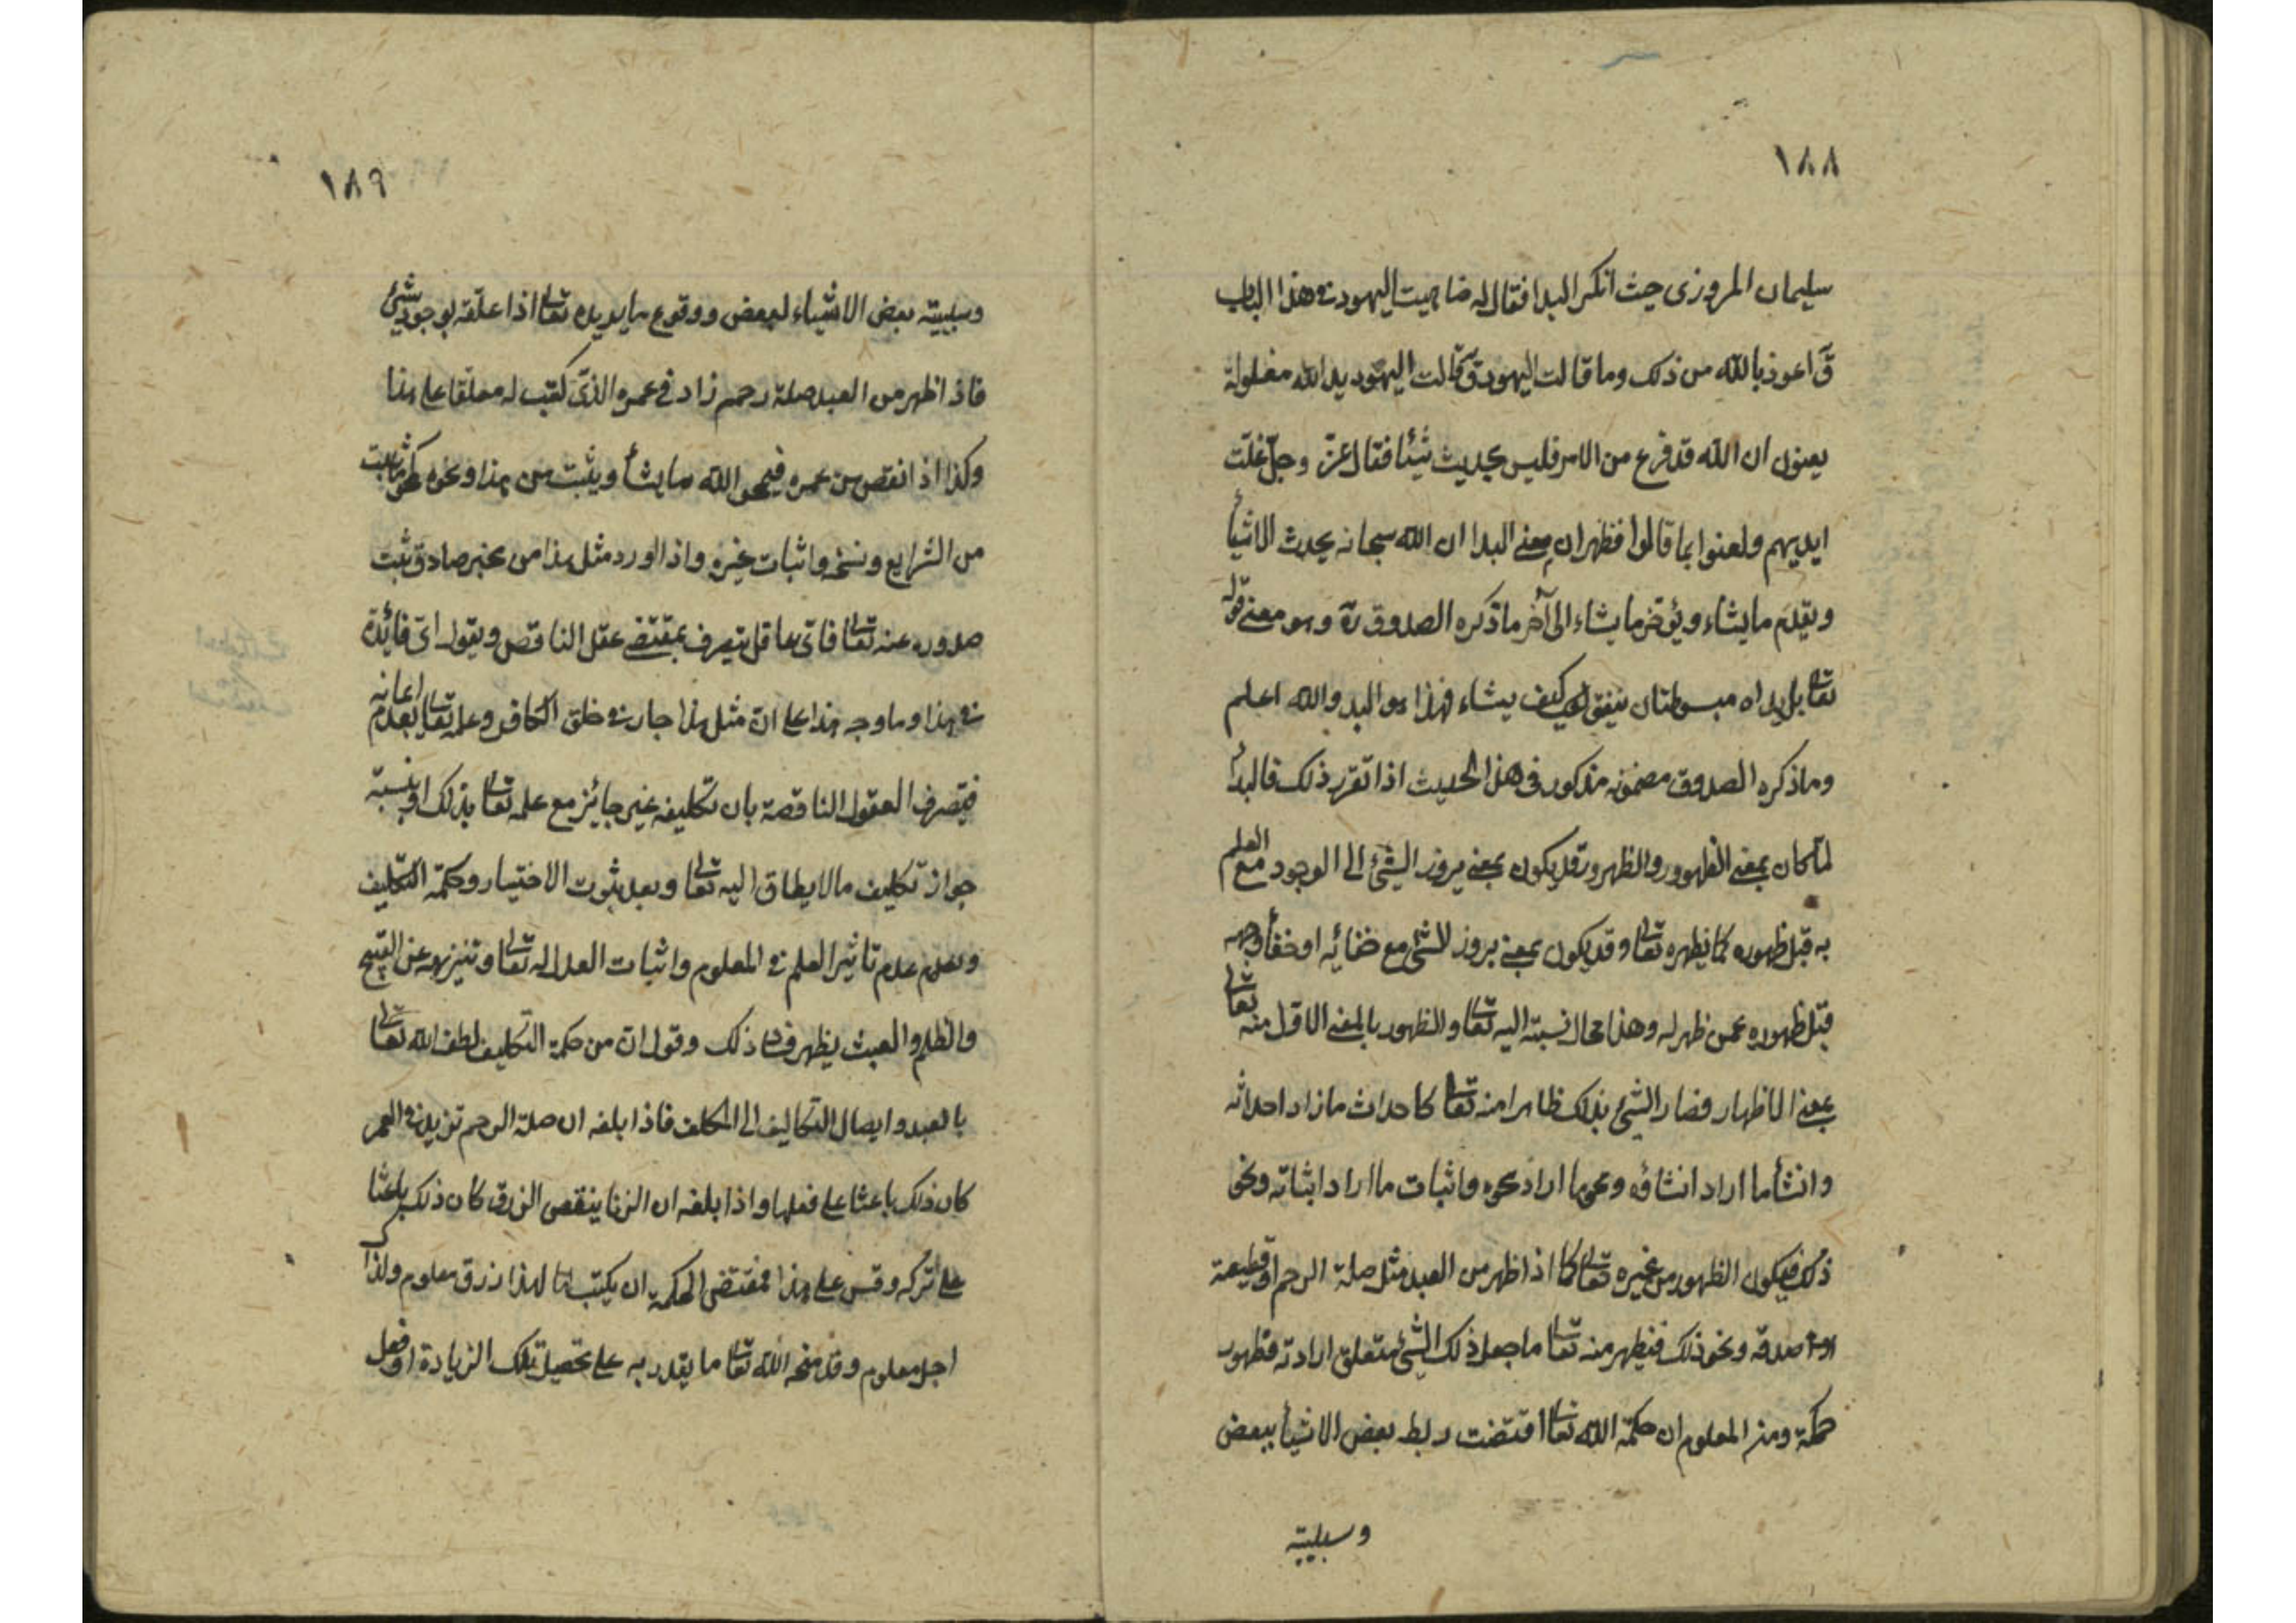 ١٨٨
سليمان المروزى حيث انكر البدا فقال له ضاهيت اليهود فى هذا الباب
قَ اعوذ بالله من ذلك وما قالت اليهود قَ قالت اليهود يد الله مغلولة
يعنون ان الله قد فرغ من الامر فليس يحدث شيئا فقال عزّ وجلّ غلّت
ايديهم ولعنوا بما قالوا فظهر ان معنى البدا ان الله سبحانه يحدث الاشيأ
ويقدّم ما يشاء ويؤخّر ما يشاء الى آخر ما ذكره الصدوق ره وهو معنى قوله
تعالى بل يداه مبسوطتان ينفق كيف يشاء فهذا هو البد والله اعلم
وما ذكره الصدوق مضمونه مذكور فى هذا الحديث اذا تقرّر ذلك فالبدأ
لمّا كان بمعنى الظهور والظهور قد يكون بمعنى بروز الشئ الى الوجود مع العلم
به قبل ظهوره كما يظهره تعالى وقد يكون بمعنى بروز الشئ مع خفائه او خفأ وجهه
قبل ظهوره عمن ظهر له وهذا محال نسبته اليه تعالى والظهور بالمعنى الاول منه تعالى
بمعنى الاظهار فصار الشئ بذلك ظاهرا منه تعالى كاحداث ما اراد احداثه
وانشأ ما اراد انشاؤه ومحو ما اراد محوه واثبات ما اراد اثباته ونحو
ذلك فيكون الظهور من غيره تعالى كما اذا ظهر من العبد مثل صلة الرحم او قطيعة
او صدقه ونحو ذلك فيظهر منه تعالى ما جعل ذلك الشئ متعلق ارادته فظهور
حكمة ومن المعلوم ان حكمة الله تعالى اقتضت ربط بعض الاشيأ ببعض
وسببية
١٨٩
وسببية بعض الاشياء لبعض ووقوع ما يريده تعالى اذا علّقه بوجود شئ
فاذا ظهر من العبد صلة رحم زاد فى عمره الذى كتب له معلّقا على هذا
وكذا اذا نقص من عمره فيمحو الله ما يشأ ويثبت من هذا ونحوه كمحو ما ثبت
من الشرايع ونسخه واثبات غيره واذا ورد مثل هذا من مخبر صادق ثبت
صدوره عنه تعالى فاىّ عاقل يتصرف بمقتضى عقل الناقص ويقول اىّ فائدة
فى هذا وما وجه هذا على انّ مثل هذا جار فى خلق الكافر وعلمه تعالى بعدم ايمانه
فيتصرف العقول الناقصة بان تكليفه غير جائز مع علمه تعالى بذلك او بنسبة
جواز تكليف ما لا يطاق اليه تعالى وبعد ثبوت الاختيار وحكمة التكليف
وعدم تاثير العلم فى المعلوم واثبات العدل له تعالى وتنزيهه عن القبيح
والظلم والعبث يظهر فساد ذلك وقول ان من حكمة التكليف لطف الله تعالى
بالعبد وايصال التكاليف الى المكلف فاذا بلغه ان صلة الرحم تزيد فى العمر
كان ذلك باعثا على فعلها واذا بلغه ان الزنا ينقص الرزق كان ذلك باعثا
على تركه وقس على هذا فمقتضى الحكمة ان يكتب لهذا رزق معلوم ولذا
اجل معلوم وقد منحه الله تعالى ما يقدر به على تحصيل تلك الزيادة او فعل